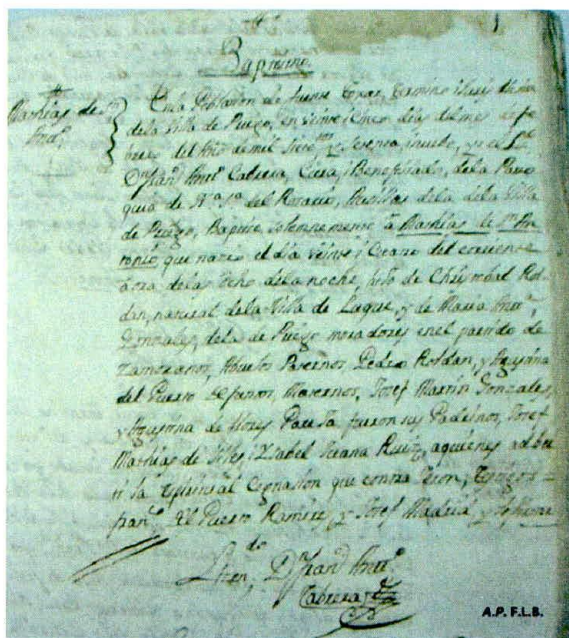 Baptismo.
Mathias de Sn
Antº
En la Poblasion de fuente Toxar, termino i Jurisdision
de la Villa de Priego, en veinte i Cinco dias del mes de fe
brero del Año de mil Setec.tos y Setenta i nuebe, yo el Lº
Dn Franco Antº Cabrera, Cura, i Benefisiado, de la Parro
quia de Na Sa del Rosario, Auxiliar de la de la Villa
de Priego, Baptise solemnemente a Mathias de Sn An
tonio que nacio el dia veinte i Cuatro del corriente
a ora de las Ocho de la noche, hijo de Christobal Rol
dan, natural de la Villa de Luque, y de Maria Antª
Gonzales, de la de Priego moradores en el partido de
Zamoranos, Abuelos Paternos Pedro Roldan, y Agustina
del Puerto Defuntos, Maternos, Josef Martin Gonzales,
y Agustina de Flores Pareja fueron sus Padrinos, Josef
Mathias de Siles, i Ysabel Juana Ruiz, a quienes adber
ti la espiritual Cognasion que contraxeron, testigos
Puerto Ramires, y Josef Madrid y lo firme
do
Lizen, Dn Franco Antº
Cabrera
A.P. F.L.B.